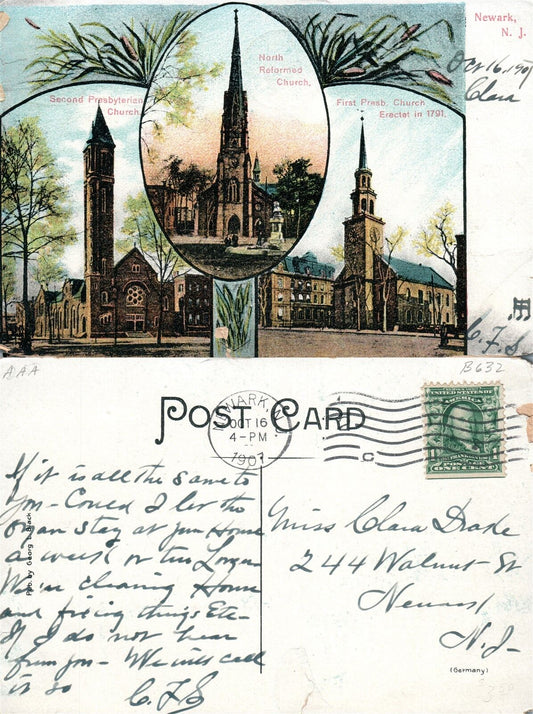 Newark,
N. J.
Oct 16, 1907
Clara
North
Reformed
Church.
Second Presbyterian
Church.
First Presb. Church
Erectet in 1791.
C. F. S
AAA
B632
POST CARD
NEWARK, N.J.
OCT 16
4-PM
1907
C
UNITED STATES OF
AMERICA
FRANKLIN
POSTAGE
1 ONE CENT 1
If it is all the same to
you - Could I let the
organ stay at your House
a week or two longer
We're cleaning House
and fixing things Etc-
If I do not hear
from you - We will call
it so
C. F. S
Pub. by Georg
Miss Clara Drake
244 Walnut St
Newark
N.J-
(Germany)